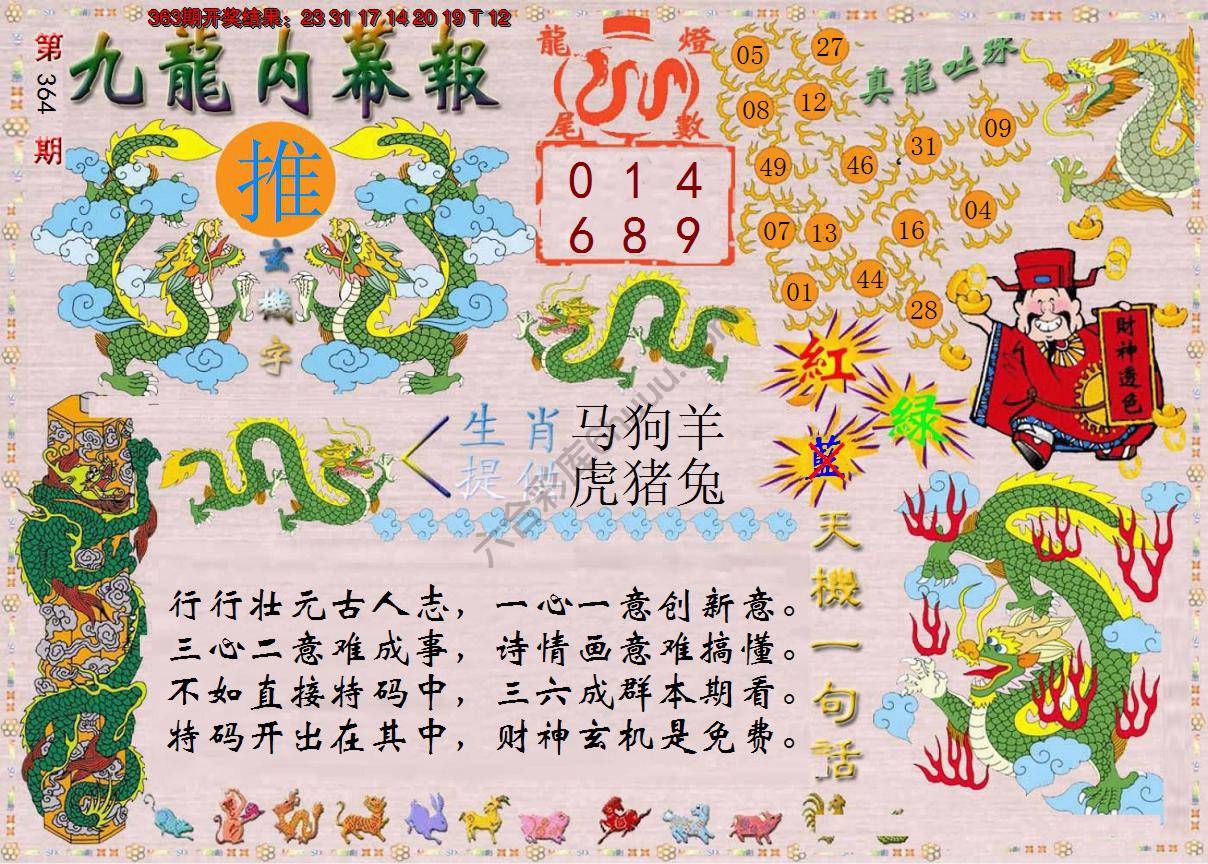 363期开奖结果：23 31 17 14 20 19 T 12
第364期
九龍内幕報
推
玄機字
龍燈尾數
0 1 4
6 8 9
真龍吐珠
05 27
08 12
31 09
49 46
04
07 13 16
44
01 28
財神透色
紅
綠
藍
生肖 马狗羊
提供 虎猪兔
六合彩库
天機一句话
行行壮元古人志，一心一意创新意。
三心二意难成事，诗情画意难搞懂。
不如直接特码中，三六成群本期看。
特码开出在其中，财神玄机是免费。